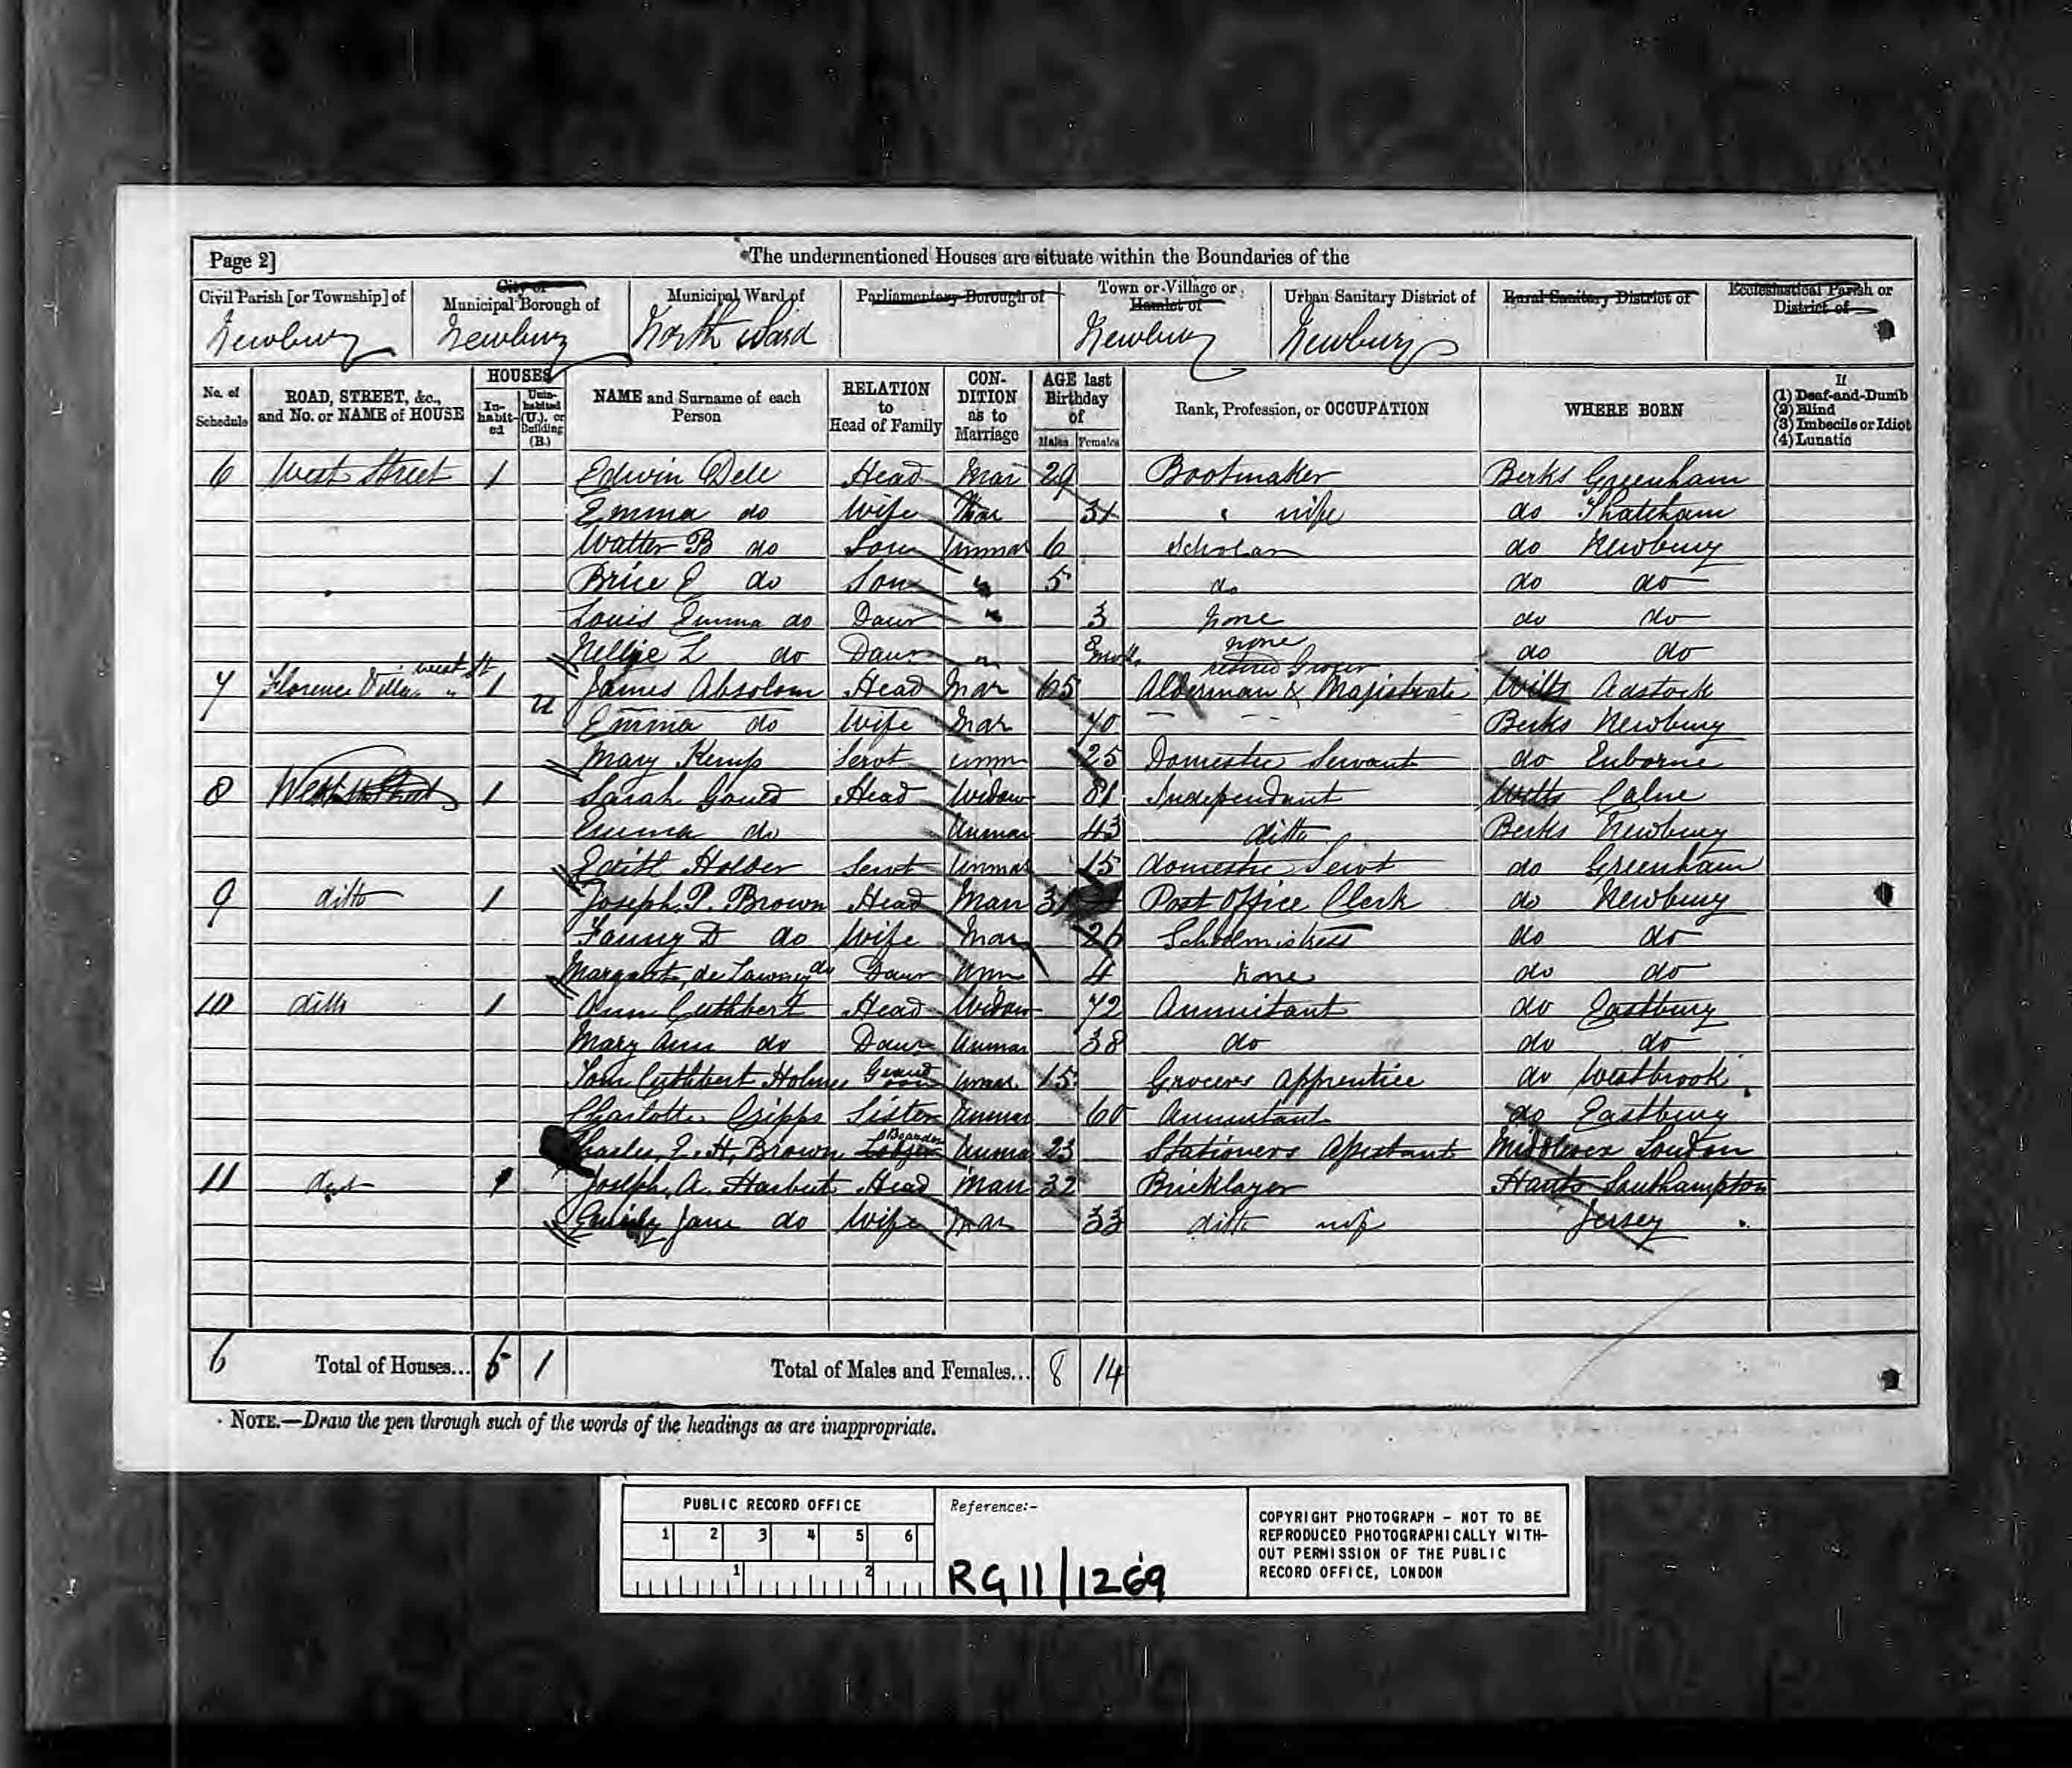 Page 2] The undermentioned Houses are situate within the Boundaries of the
Civil Parish [or Township] of City or Municipal Borough of Municipal Ward of Parliamentary Borough of Town or Village or Hamlet of Urban Sanitary District of Rural Sanitary District of Ecclesiastical Parish or District of
Newbury Newbury North Ward Newbury Newbury
No. of Schedule ROAD, STREET, &c., and No. or NAME of HOUSE HOUSES Inhabited Uninhabited (U.), or Building (B.) NAME and Surname of each Person RELATION to Head of Family CONDITION as to Marriage AGE last Birthday of Males Females Rank, Profession, or OCCUPATION WHERE BORN If (1) Deaf-and-Dumb (2) Blind (3) Imbecile or Idiot (4) Lunatic
6 West Street 1 Edwin Dell Head Mar 29 Bootmaker Berks Greenham
Emma do Wife Mar 31 " wife do Thatcham
Walter B do Son Unmar 6 Scholar do Newbury
Brice E do Son " 5 do do do
Louis Emma do Daur " 3 None do do
Nellie L do Daur " 8 mnths none do do
7 Florence Villa west st 1 James Absolom Head Mar 65 retired Grocer Alderman & Magistrate Wilts Adstock
U Emma do Wife Mar 40 Berks Newbury
Mary Kemp Servt unm 25 Domestic Servant do Enborne
8 West Street 1 Sarah Gould Head Widow 81 Independant Wilts Calne
Emma do Unmar 43 ditto Berks Newbury
Edith Holder Servt Unmar 15 domestic Servt do Greenham
9 ditto 1 Joseph P. Brown Head Marr 31 Post Office Clerk do Newbury
Fanny D do Wife Mar 26 Schoolmistress do do
Margaret de do Daur Unm 4 None do do
10 ditto 1 Ann Cuthbert Head Widow 72 Annuitant do Eastbury
Mary Ann do Daur Unmar 38 do do do
Tom Cuthbert Holmes Grand son unmar 15 Grocers apprentice do Westbrook
Charlotte Cripps Sister Unmar 60 Annuitant do Eastbury
Charles E. H. Brown Lodger Boarder Unmar 23 Stationers Assistant Middlesex London
11 1 Joseph A. Harbut Head Marr 32 Bricklayer Hants Southampton
Emily Jane do Wife Mar 33 ditto wife Jersey
6 Total of Houses... 5 1 Total of Males and Females... 8 14
NOTE.—Draw the pen through such of the words of the headings as are inappropriate.
PUBLIC RECORD OFFICE
1 2 3 4 5 6
1 2
Reference:-
RG 11/1269
COPYRIGHT PHOTOGRAPH - NOT TO BE
REPRODUCED PHOTOGRAPHICALLY WITH-
OUT PERMISSION OF THE PUBLIC
RECORD OFFICE, LONDON